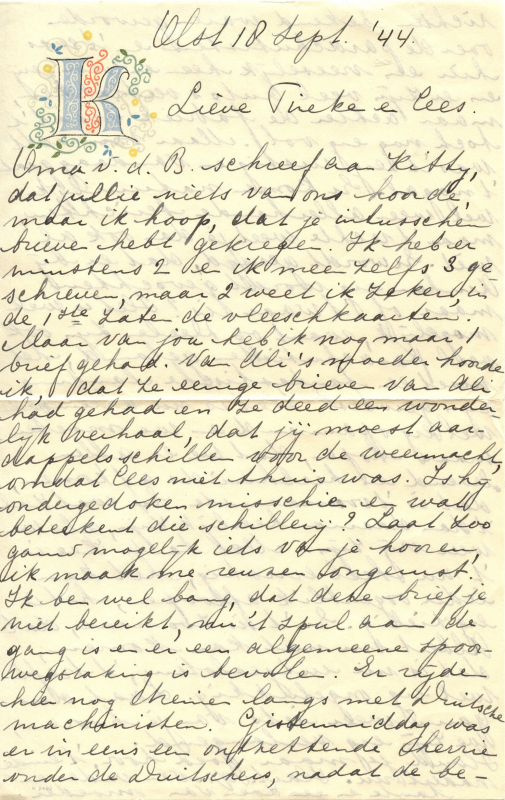 Olst 18 Sept. '44.
K
Lieve Tineke e Cees.
Oma v. d. B. schreef aan Kitty,
dat jullie niets van ons hoorde,
maar ik hoop, dat je intusschen
brieven hebt gekregen. Ik heb er
minstens 2 en ik meen zelfs 3 ge-
schreven, maar 2 weet ik zeker, in
de 1ste zaten de vleeschkaarten.
Maar van jou heb ik nog maar 1
brief gehad. Van Ali's moeder hoorde
ik, dat ze eenige brieven van Ali
had gehad en ze deed een wonder-
lijk verhaal, dat jij moest aar-
dappels schillen voor de weermacht,
omdat Cees niet thuis was. Is hij
ondergedoken misschien en wat
beteekent die schillerij? Laat zoo
gauw mogelijk iets van je hooren,
ik maak me reuzen ongerust!
Ik ben wel bang, dat deze brief je
niet bereikt, nu 't spul aan de
gang is en er een algemeene spoor-
wegstaking is bevolen. Er rijden
hier nog treinen langs met Duitsche
machinisten. Gistermiddag was
er in eens een ontzettende herrie
onder de Duitschers, nadat de be-